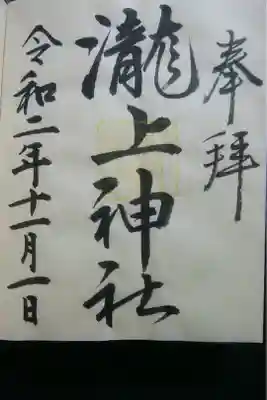 奉拝
瀧上神社
令和二年十一月一日